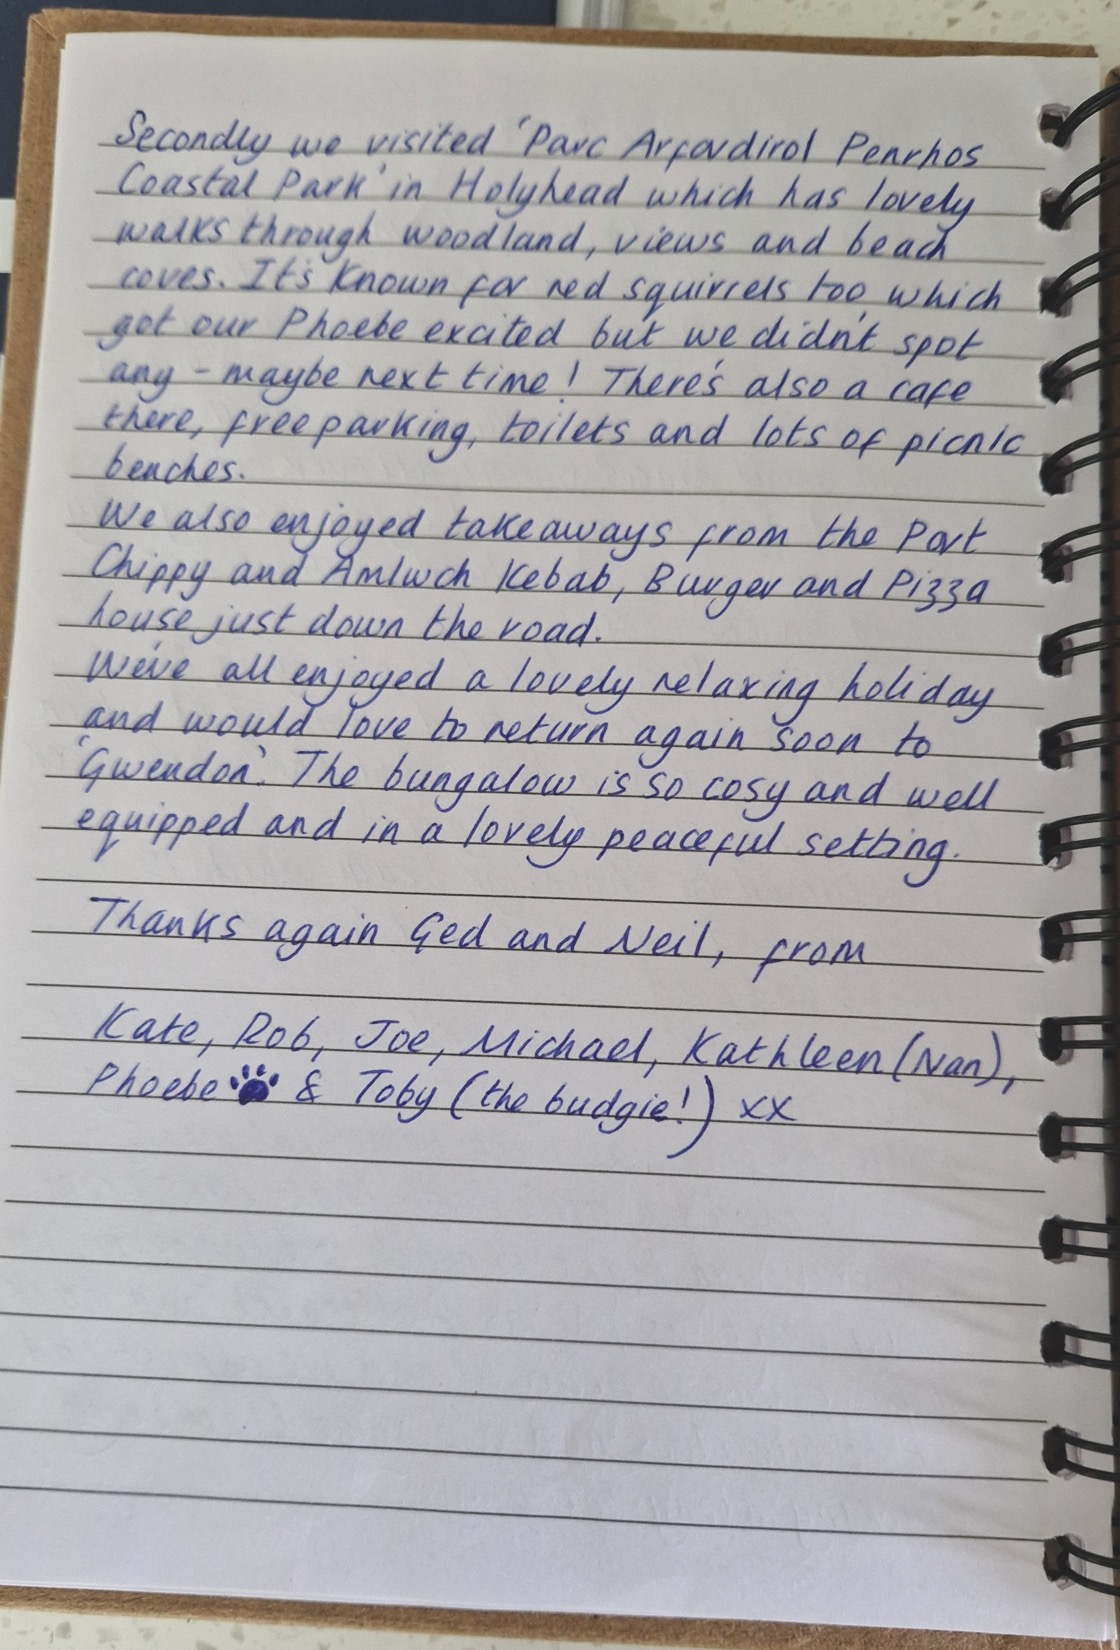 Secondly we visited 'Parc Arfordirol Penrhos
Coastal Park' in Holyhead which has lovely
walks through woodland, views and beach
coves. It's known for red squirrels too, which
got our Phoebe excited but we didn't spot
any - maybe next time! There's also a cafe
there, free parking, toilets and lots of picnic
benches.
We also enjoyed takeaways from the Port
Chippy and Amlwch Kebab, Burger and Pizza
house just down the road.
We've all enjoyed a lovely relaxing holiday
and would love to return again soon to
'Gwendon'. The bungalow is so cosy and well
equipped and in a lovely peaceful setting.
Thanks again Ged and Neil, from
Kate, Rob, Joe, Michael, Kathleen (Nan),
Phoebe & Toby (the budgie!) xx